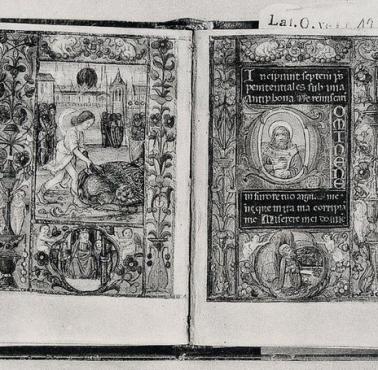 Lat. O. v.
Incipiunt septem ps
penitentiales sub una
Antiphona
OMINE NE
in furore tuo me
neque in ira tua corripia
me Miserere mei domine